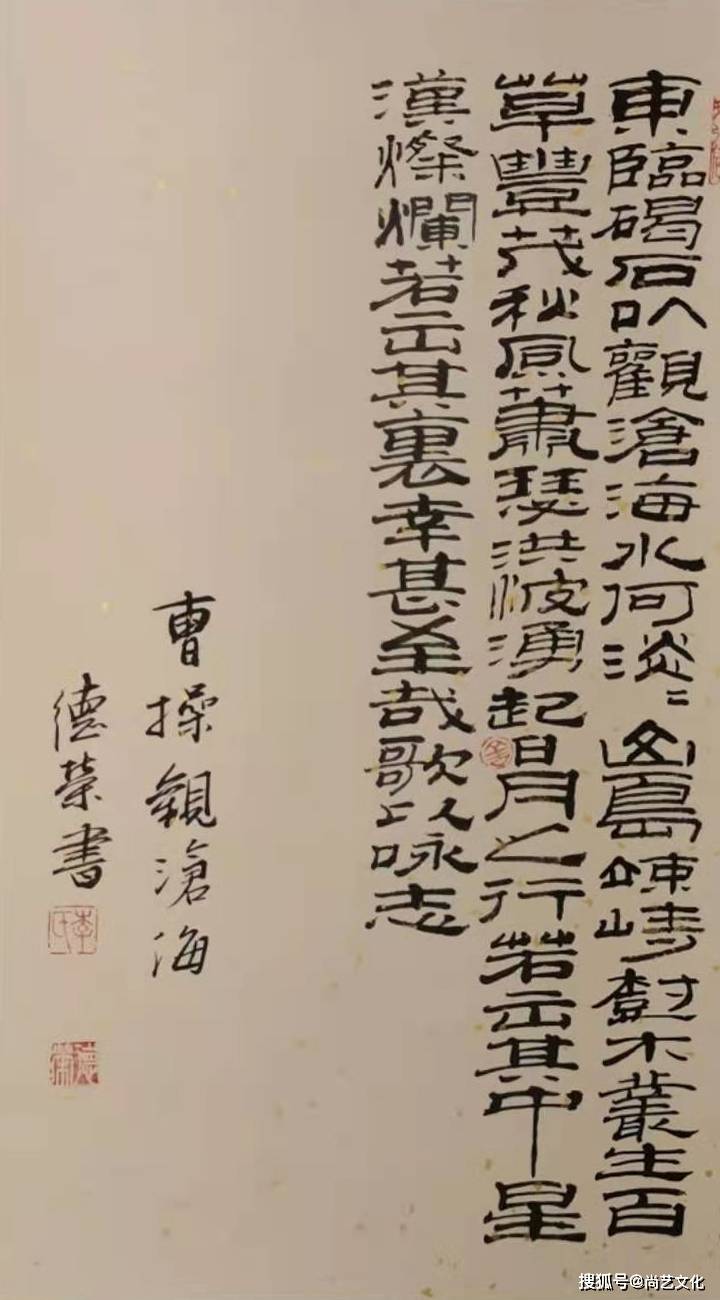 東臨碣石以觀滄海水何淡〻山島竦峙樹木叢生百
草豐茂秋風蕭瑟洪波湧起日月之行若出其中星
漢燦爛若出其裏幸甚至哉歌以咏志
曹操觀滄海
德榮書
李氏
德榮
搜狐号@尚艺文化